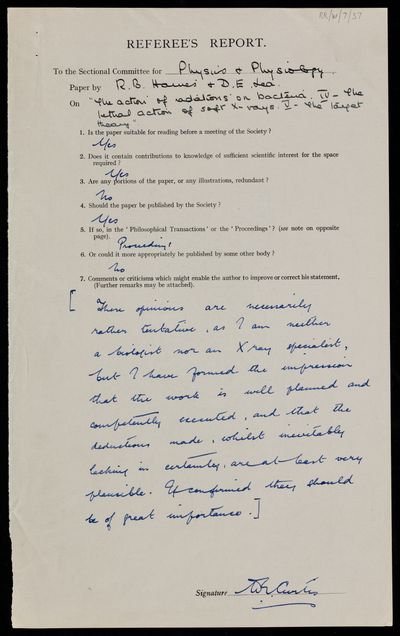 RR/W/7/37
REFEREE'S REPORT.
To the Sectional Committee for Physics & Physiology
Paper by R.B. Haines & D.E. Lea.
On "The action of radiations on bacteria. IV - The
lethal action of soft X-rays. V - The target
theory"
1. Is the paper suitable for reading before a meeting of the Society?
Yes
2. Does it contain contributions to knowledge of sufficient scientific interest for the space
required?
Yes
3. Are any portions of the paper, or any illustrations, redundant?
No
4. Should the paper be published by the Society?
Yes
5. If so, in the 'Philosophical Transactions' or the 'Proceedings'? (see note on opposite
page).
Proceedings
6. Or could it more appropriately be published by some other body?
No
7. Comments or criticisms which might enable the author to improve or correct his statement.
(Further remarks may be attached).
[ These opinions are necessarily
rather tentative, as I am neither
a biologist nor an X ray specialist,
but I have formed the impression
that the work is well planned and
competently executed, and that the
deductions made, whilst inevitably
lacking in certainty, are at least very
plausible. If confirmed they should
be of great importance. ]
Signature W.E. Curtis